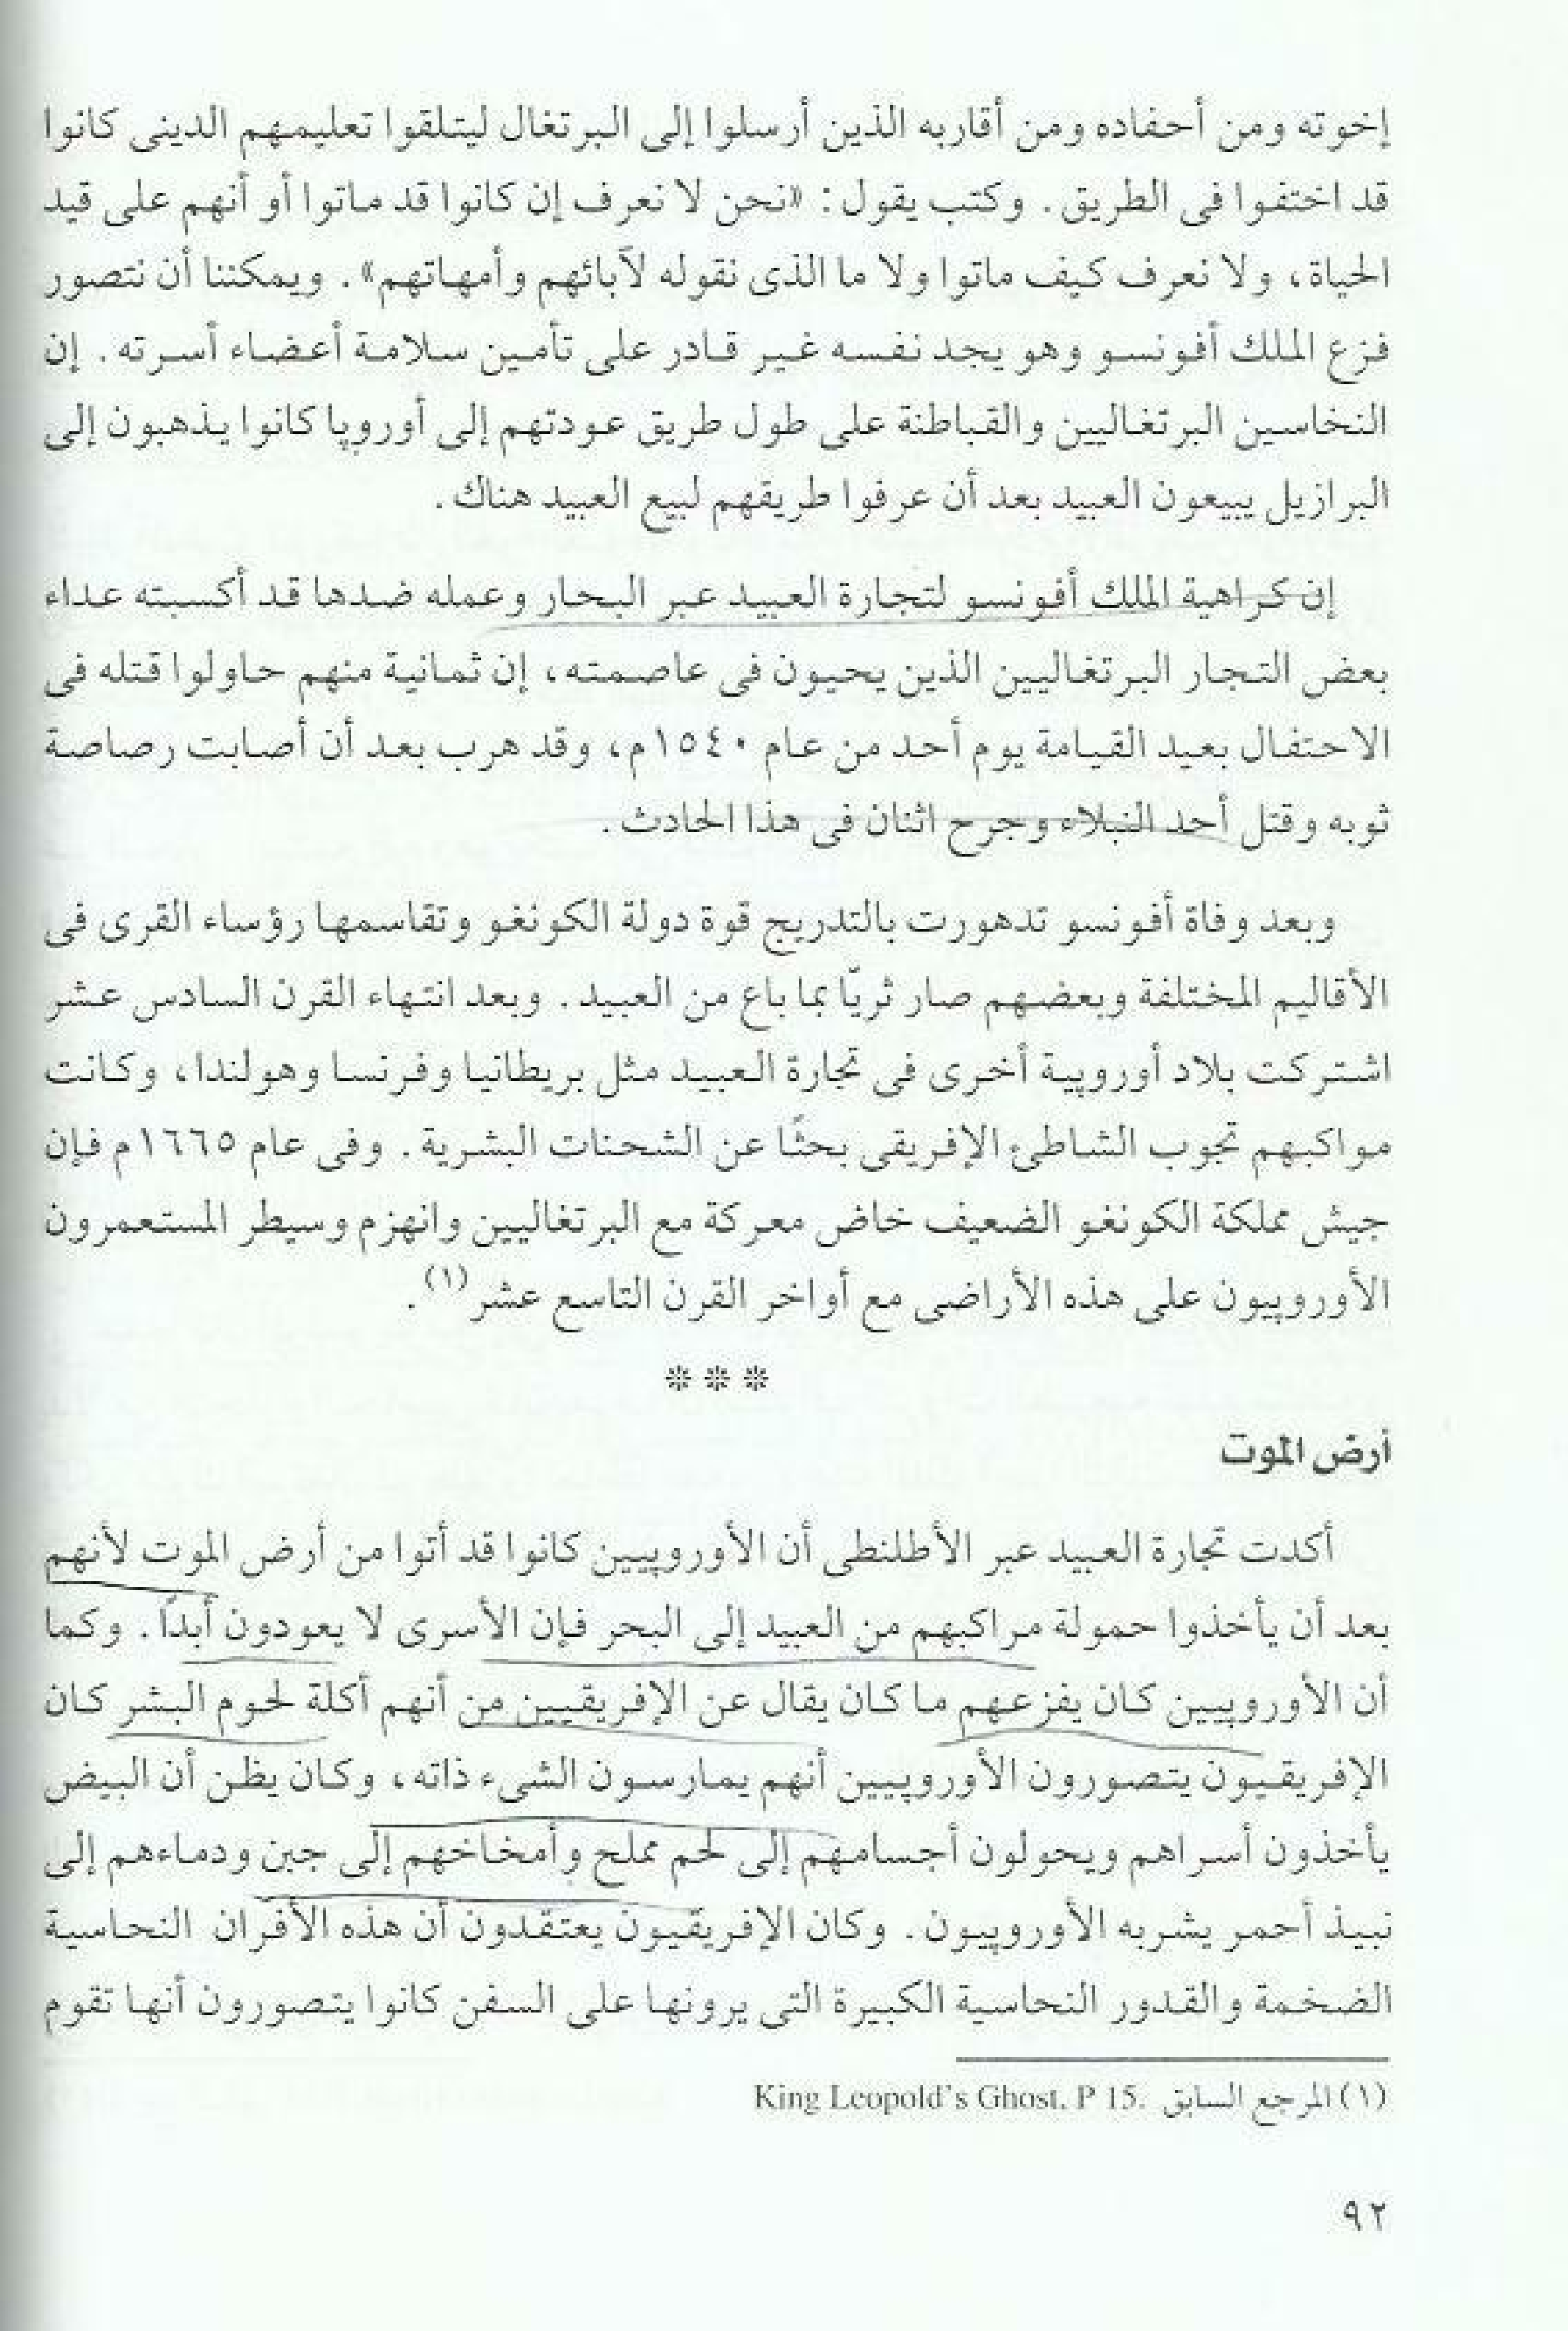 إخوته ومن أحفاده ومن أقاربه الذين أرسلوا إلى البرتغال ليتلقوا تعليمهم الدينى كانوا
قد اختفوا فى الطريق. وكتب يقول: «نحن لا نعرف إن كانوا قد ماتوا أو أنهم على قيد
الحياة، ولا نعرف كيف ماتوا ولا ما الذى نقوله لآبائهم وأمهاتهم». ويمكننا أن نتصور
فزع الملك أفونسو وهو يجد نفسه غير قادر على تأمين سلامة أعضاء أسرته. إن
النخاسين البرتغاليين والقباطنة على طول طريق عودتهم إلى أوروپا كانوا يذهبون إلى
البرازيل يبيعون العبيد بعد أن عرفوا طريقهم لبيع العبيد هناك.
إن كراهية الملك أفونسو لتجارة العبيد عبر البحار وعمله ضدها قد أكسبته عداء
بعض التجار البرتغاليين الذين يحيون فى عاصمته، إن ثمانية منهم حاولوا قتله فى
الاحتفال بعيد القيامة يوم أحد من عام ١٥٤٠م، وقد هرب بعد أن أصابت رصاصة
ثوبه وقتل أحد النبلاء وجرح اثنان فى هذا الحادث.
وبعد وفاة أفونسو تدهورت بالتدريج قوة دولة الكونغو وتقاسمها رؤساء القرى فى
الأقاليم المختلفة وبعضهم صار ثريّا بما باع من العبيد. وبعد انتهاء القرن السادس عشر
اشتركت بلاد أوروپية أخرى فى تجارة العبيد مثل بريطانيا وفرنسا وهولندا، وكانت
مواكبهم تجوب الشاطئ الإفريقى بحثًا عن الشحنات البشرية. وفى عام ١٦٦٥م فإن
جيش مملكة الكونغو الضعيف خاض معركة مع البرتغاليين وانهزم وسيطر المستعمرون
الأوروپيون على هذه الأراضى مع أواخر القرن التاسع عشر(١).
* * *
أرض الموت
أكدت تجارة العبيد عبر الأطلنطى أن الأوروپيين كانوا قد أتوا من أرض الموت لأنهم
بعد أن يأخذوا حمولة مراكبهم من العبيد إلى البحر فإن الأسرى لا يعودون أبدًا. وكما
أن الأوروپيين كان يفزعهم ما كان يقال عن الإفريقيين من أنهم أكلة لحوم البشر كان
الإفريقيون يتصورون الأوروپيين أنهم يمارسون الشىء ذاته، وكان يظن أن البيض
يأخذون أسراهم ويحولون أجسامهم إلى لحم مملح وأمخاخهم إلى جبن ودماءهم إلى
نبيذ أحمر يشربه الأوروپيون. وكان الإفريقيون يعتقدون أن هذه الأفران النحاسية
الضخمة والقدور النحاسية الكبيرة التى يرونها على السفن كانوا يتصورون أنها تقوم
(١) المرجع السابق King Leopold's Ghost. P 15.
٩٢